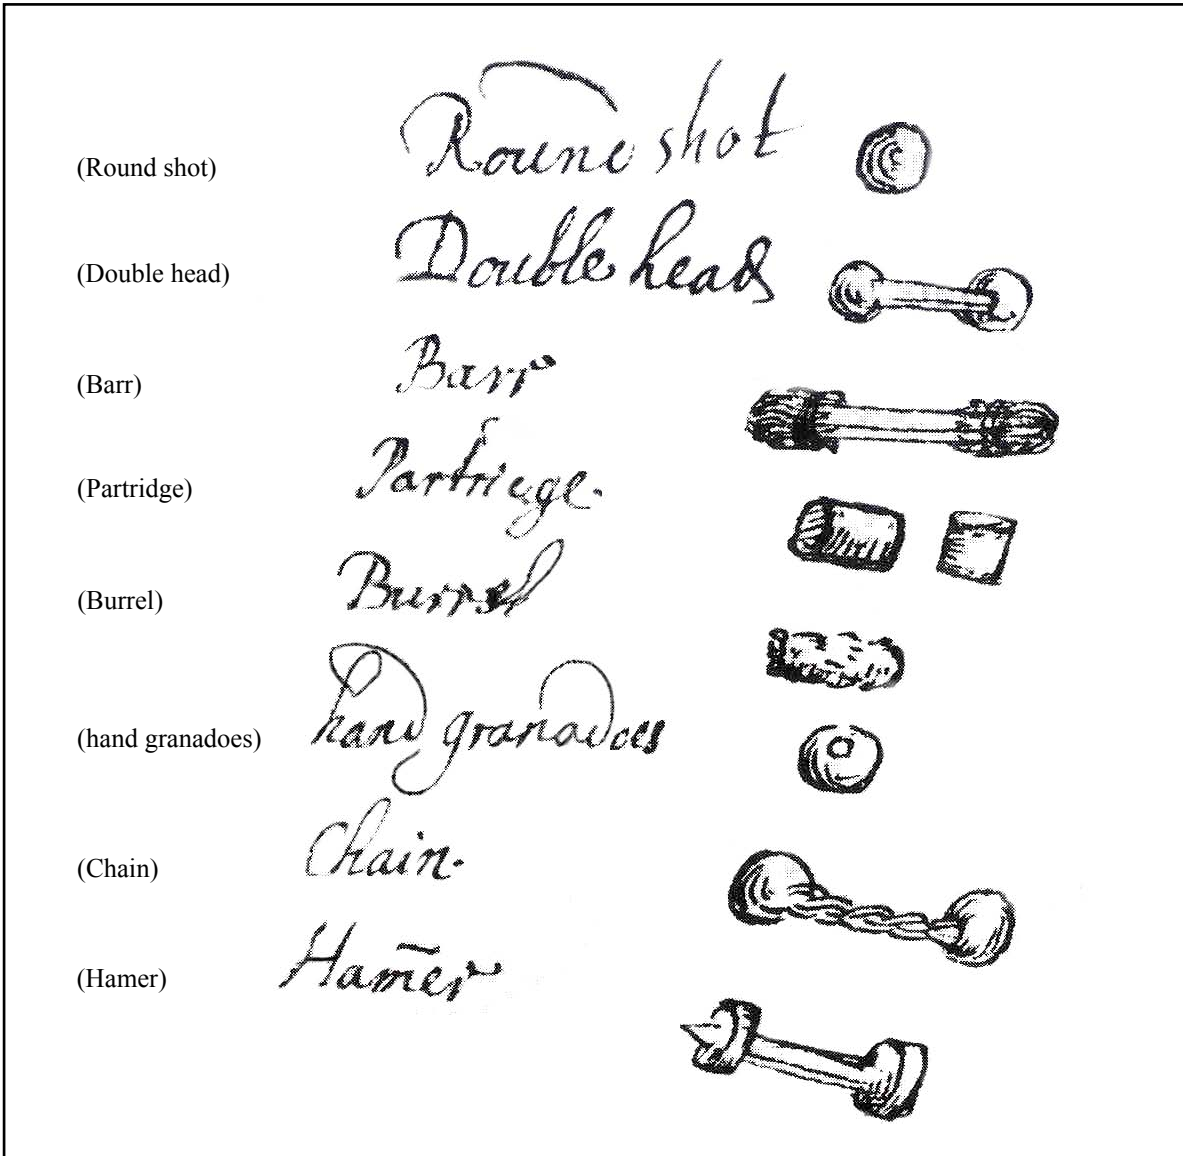 (Round shot) Round shot
(Double head) Double head
(Barr) Barr
(Partridge) Partridge.
(Burrel) Burrel
(hand granadoes) hand granadoes
(Chain) Chain.
(Hamer) Ham̄er